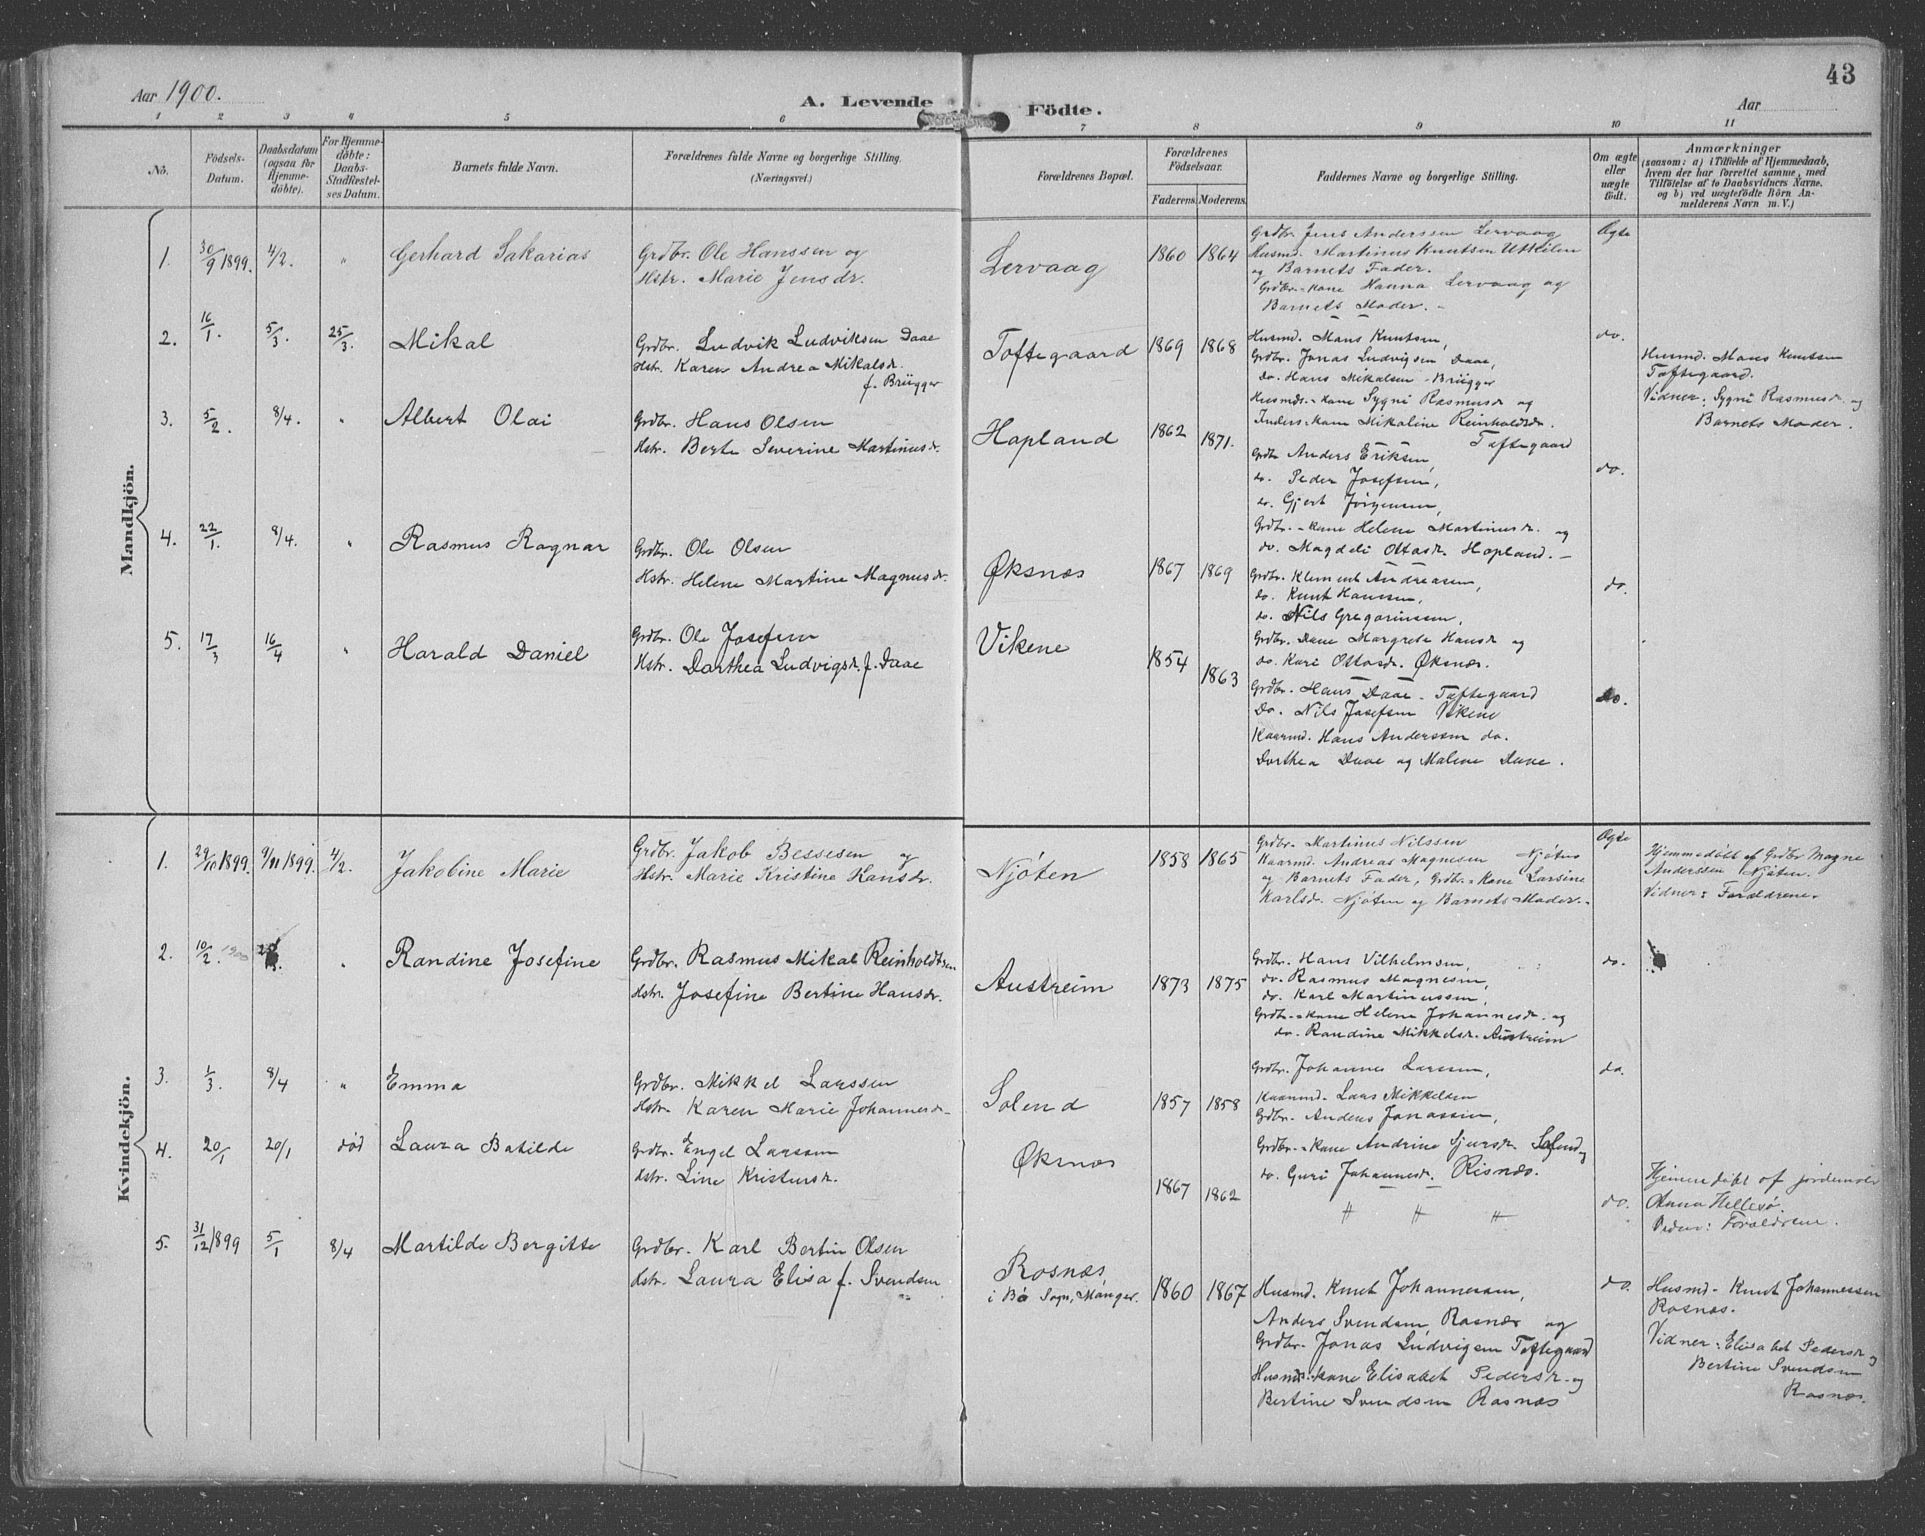 Aar 1900.
A. Levende Födte.
Aar
43
1 2 3 4 5 6 7 8 9 10 11
No.
Födsels-Datum.
Daabsdatum (ogsaa for Hjemme-döbte).
For Hjemme-döbte: Daabs-Stadfestel-ses Datum.
Barnets fulde Navn.
Forældrenes fulde Navne og borgerlige Stilling. (Næringsvei.)
Forældrenes Bopæl.
Forældrenes Födselsaar.
Faderens. Moderens.
Faddernes Navne og borgerlige Stilling.
Om ægte eller uægte födt.
Anmærkninger
(saasom: a) i Tilfælde af Hjemmedaab, hvem der har forrettet samme, med Tilföielse af to Daabsvidners Navne, og b) ved uægtefödte Börn An-melderens Navn m. V.)
Mandkjön.
1. 30/9 1899. 4/2. " Gerhard Sakarias
Grdbr. Ole Hanssen og
Hstr. Marie Jensdr.
Lervaag 1860 1864
Grdbr. Jens Anderssen Lervaag
Husmd. Martinus Knutsen Utkilen
og Barnets Fader.
Grdbr.-kone Hanna Lervaag og
Barnets Moder.-
Ægte
2. 16/1. 5/3. 25/3. Mikal
Grdbr. Ludvik Ludviksen Daae
Hstr. Karen Andrea Mikalsdr.
f. Brügger
Toftegaard 1869 1868
Husmd. Mons Knutsen,
Grdbr. Jonas Ludvigsen Daae,
do. Hans Mikalsen Brügger
Husmds.-kone Sygni Rasmusdr og
Inders.-kone Mikaline Reinholdsdr.
Toftegaard
do.
Husmd. Mons Knutsen
Toftegaard.
Vidner: Sygni Rasmusdr. og
Barnets Moder.
3. 5/2. 8/4. " Albert Olai
Grdbr. Hans Olsen
Hstr. Berte Severine Martinusdr.
Hopland 1862 1871.
Grdbr Anders Eriksen,
do. Peder Josefsen,
do. Gjert Jörgensen,
Grdbr.-kone Helene Martinusdr. og
do. Magdeli Ottosdr. Hopland.-
do.
4. 22/1. 8/4. " Rasmus Ragnar
Grdbr. Ole Olsen
Hstr. Helene Martine Magnusdr.
Øksnæs 1867 1869
Grdbr. Klement Andreasen,
do. Knut Hanssen,
do. Nils Gregoriussen,
Grdbr. Dane Margrete Hansdr og
do. Kari Ottosdr. Øksnæs.
do.
5. 17/3 16/4 " Harald Daniel
Grdbr. Ole Josefsen
Hstr. Dorthea Ludvigsdr. f. Daae
Vikene 1854 1863
Grdbr. Hans Daae Toftegaard
Do. Nils Josefsen Vikene
Kaarmd. Hans Anderssen do.
Dorthea Daae og Malene Daae.
do.
Kvindekjön.
1. 29/10 1899. 9/11 1899. 4/2. Jakobine Marie
Grdbr. Jakob Bessesen og
Hstr. Marie Kristine Hansdr.
Njöten 1858 1865
Grdbr. Martinus Nilssen
Kaarmd. Andreas Magnesen Njöten
og Barnets Fader, Grdbr.-kone Larsine
Karlsdr. Njöten og Barnets Moder.-
Ægte
Hjemmedöbt af Grdbr Magne
Anderssen Njöten.
Vidner: Forældrene.
2. 10/2. 1900 " Randine Josefine
Grdbr. Rasmus Mikal Reinholdtsen
Hstr. Josefine Bertine Hansdr.
Austreim 1873 1875
Grdbr. Hans Vilhelmsen,
do. Rasmus Magnesen,
do. Karl Martinussen,
Grdbr.-kone Helene Johannesdr. og
do. Randine Mikkelsdr. Austreim
do.
3. 1/3. 8/4 " Emma
Grdbr. Mikkel Larssen
Hstr. Karen Marie Johannesdr.
Solend 1857 1858
Grdbr. Johannes Larssen,
Kaarmd. Lars Mikkelsen
Grdbr. Anders Jonassen,
Grdbr.-kone Andrine Sjursdr. Solend og
do. Guri Johannesdr. Risnæs.
do.
4. 20/1 20/1 död Laura Batilde
Grdbr. Engel Larssen
Hstr. Line Kristensdr.
Øksnæs 1867 1862
" " "
do.
Hjemmedöbt af jordemoder
Anna Hellesö.
Vidner: Forældrene.
5. 31/12 1899 5/1 8/4 Martilde Bergitte
Grdbr. Karl Bertin Olsen
Hstr. Laura Elisa f. Svendsen
Rosnæs
i Bö Sogn, Manger. 1860 1867
Husmd. Knut Johannessen,
Anders Svendsen Rosnæs og
Grdbr. Jonas Ludvigsen Toftegaard
Husmds.-kone Elisabet Pedersdr. og
Bertine Svendsen Rosnæs
do.
Husmd. Knut Johannessen
Rosnæs.
Vidner: Elisabet Pedersdr og
Bertine Svendsen
Rosnæs.